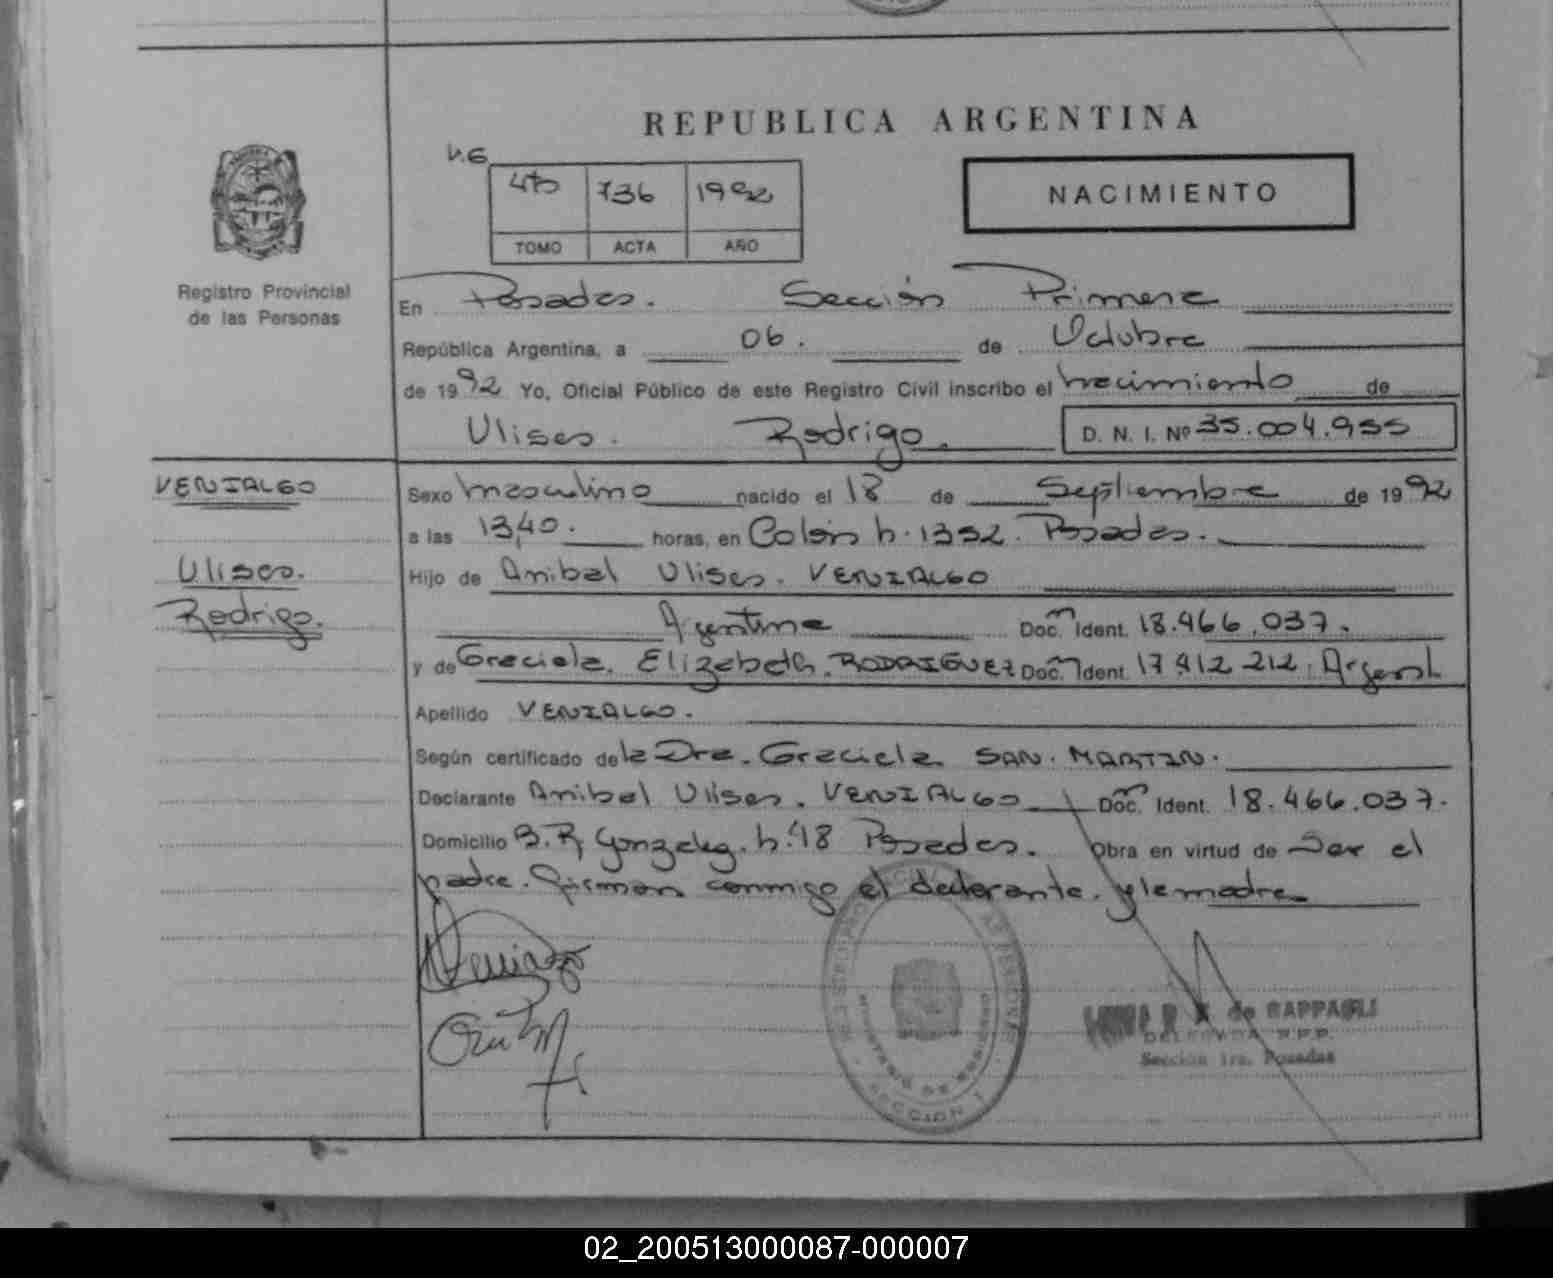 REPUBLICA ARGENTINA
V.6
4to 736 1992
TOMO ACTA AÑO
NACIMIENTO
Registro Provincial
de las Personas
En Posadas. Sección Primera
República Argentina, a 06. de Octubre
de 1992 Yo, Oficial Público de este Registro Civil inscribo el nacimiento de
Ulises. Rodrigo. D. N. I. Nº 35.004.955
VENIALGO
Ulises.
Rodrigo.
Sexo masculino nacido el 18 de Septiembre de 1992
a las 13,40. horas, en Colón n. 1352. Posadas.
Hijo de Anibal Ulises. VENIALGO
Argentina Doc. Ident. 18.466.037.
y de Graciela. Elizabeth. RODRIGUEZ Doc. Ident. 17.412.212. Argent
Apellido VENIALGO.
Según certificado de la Dra. Graciela SAN. MARTIN.
Declarante Anibal Ulises. VENIALGO Doc. Ident. 18.466.037.
Domicilio B. R. Gonzalez. n. 48 Posadas. Obra en virtud de Ser el
padre. Firman conmigo el declarante. y la madre
de CAPPAGLI
DELEGADA R.P.P.
Sección 1ra. Posadas
SECCION 1
02_200513000087-000007